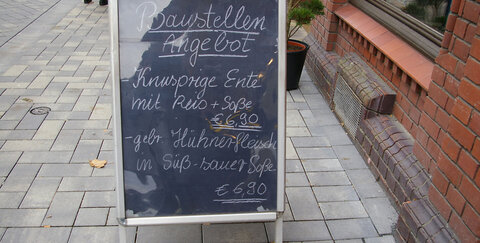 Baustellen
Angebot
Knusprige Ente
mit Reis + Soße
€ 6,90
- gebr. Hühnerfleisch
in Süß-sauer Soße
€ 6,90